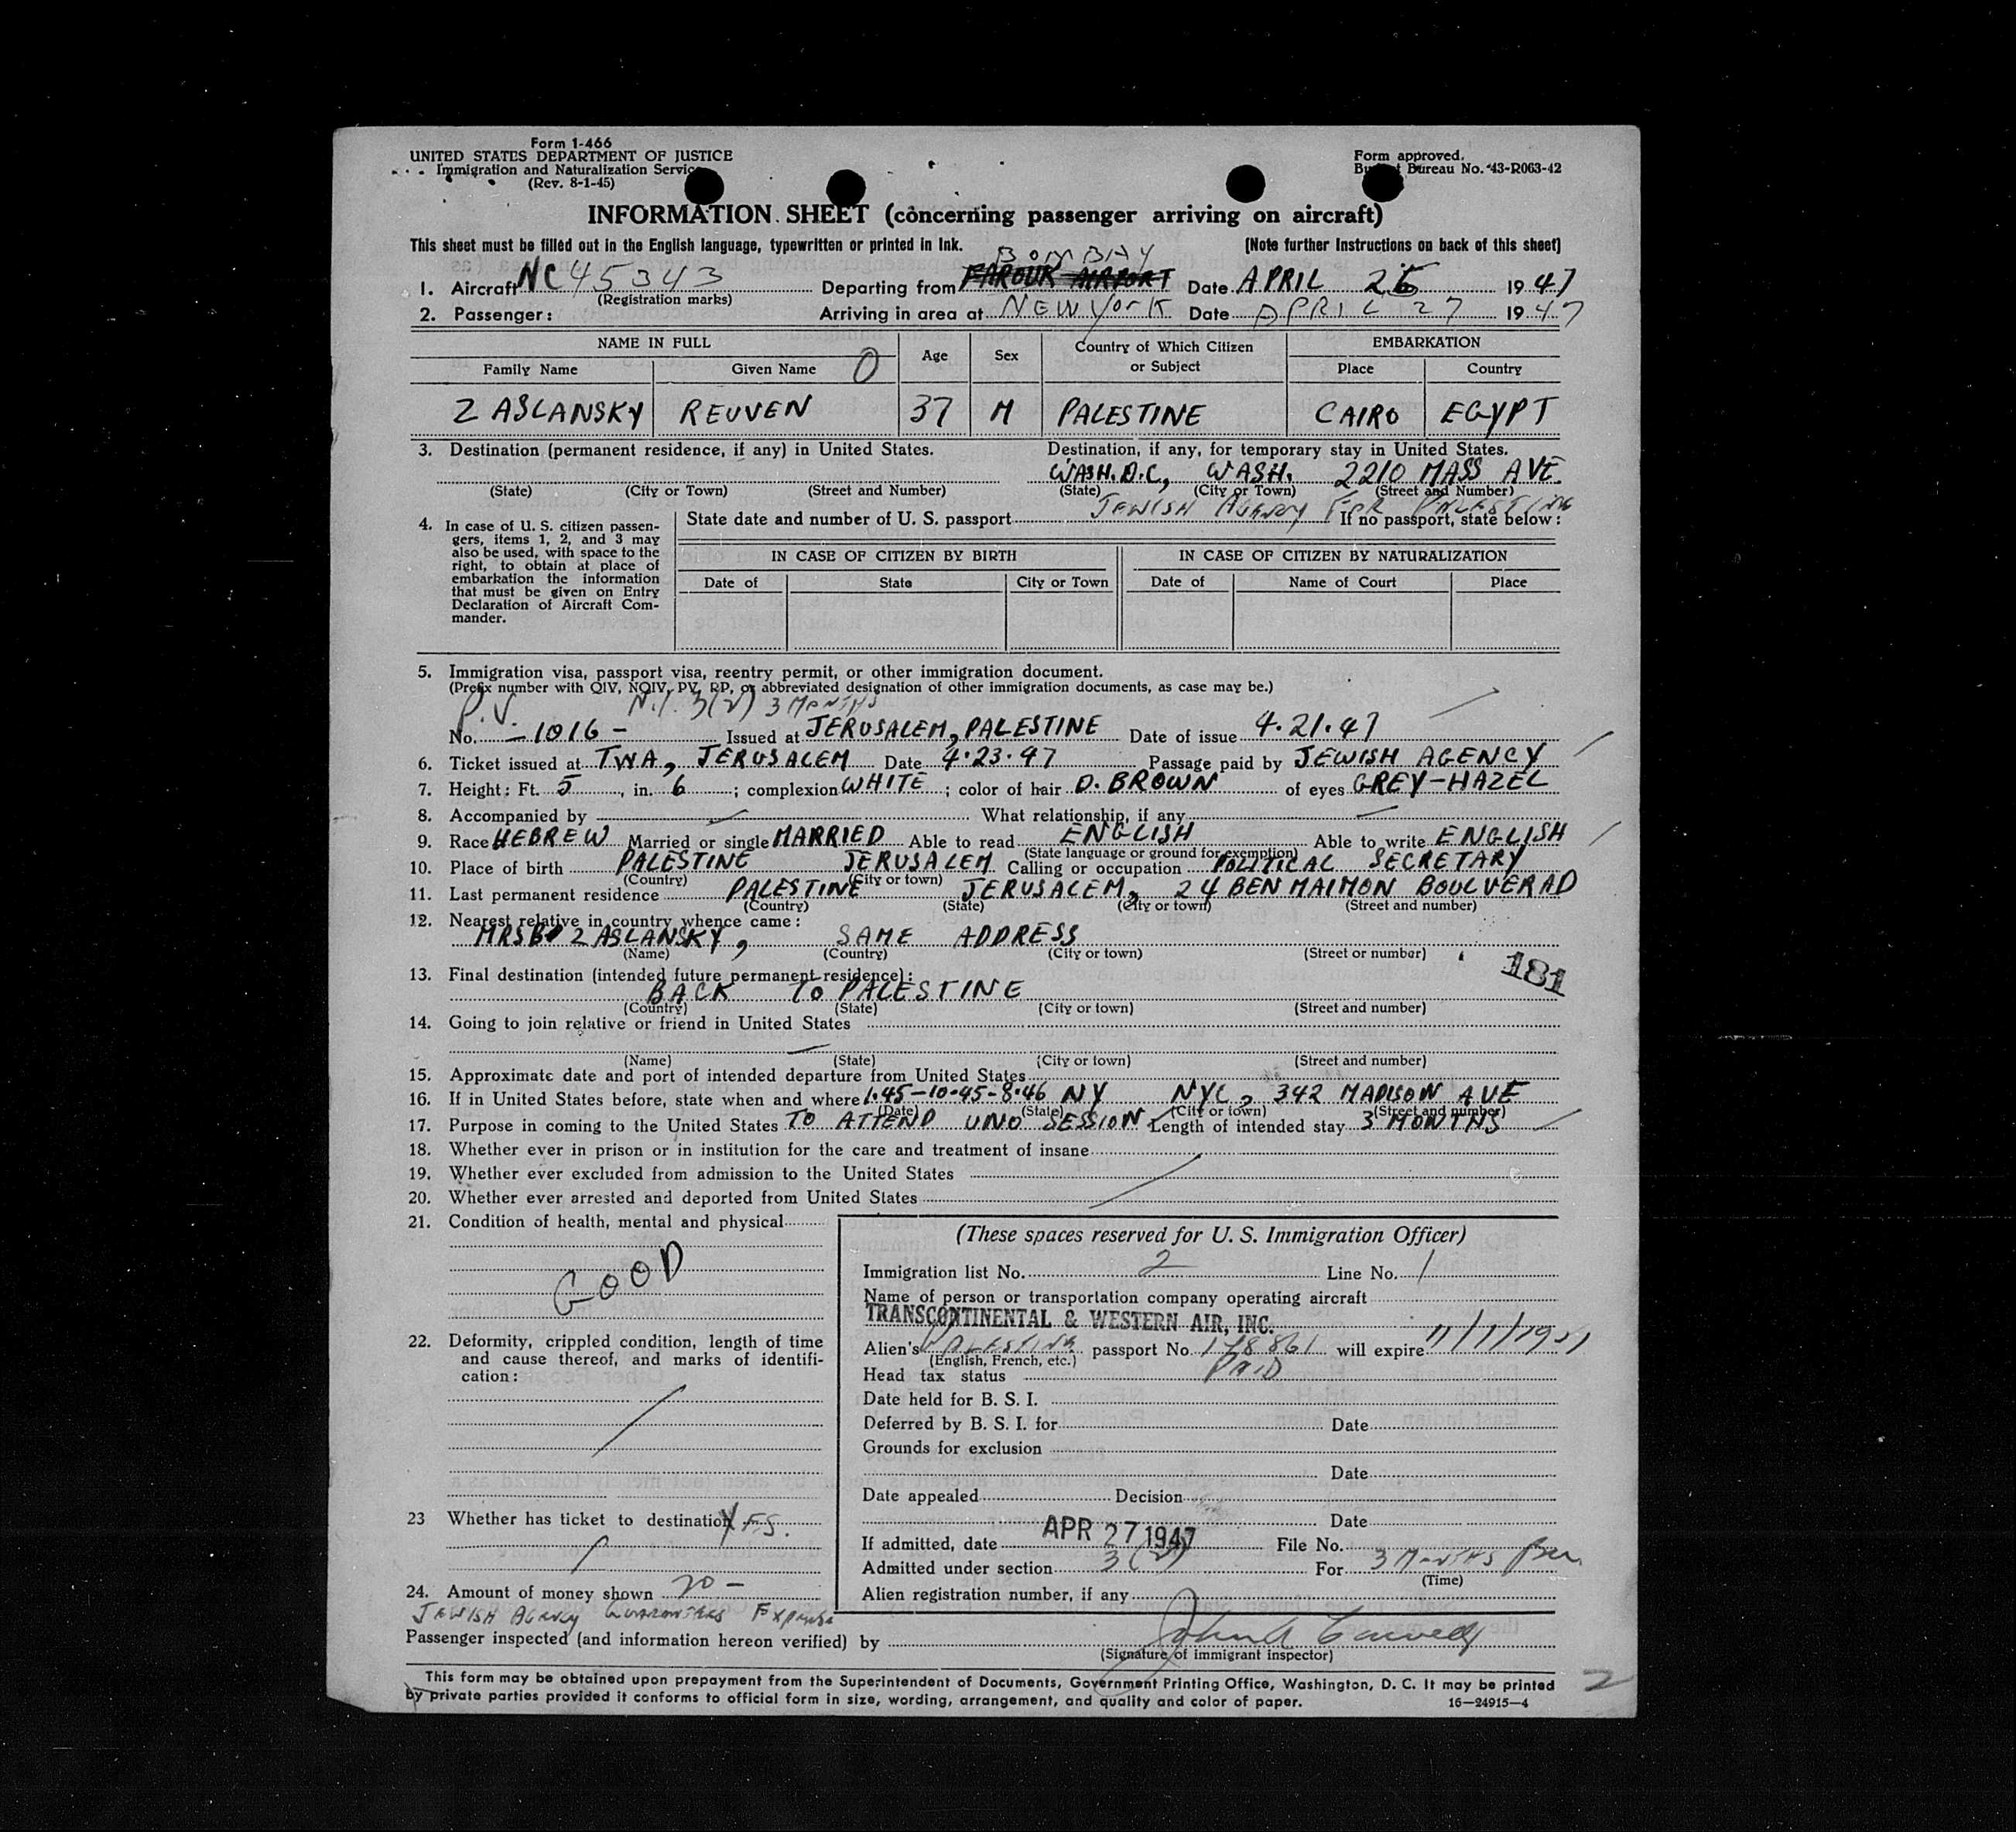 Form I-466
UNITED STATES DEPARTMENT OF JUSTICE
Immigration and Naturalization Service
(Rev. 8-1-45)
Form approved.
Budget Bureau No. 43-R063-42
INFORMATION SHEET (concerning passenger arriving on aircraft)
This sheet must be filled out in the English language, typewritten or printed in ink.
[Note further instructions on back of this sheet]
BOMBAY
1. Aircraft NC 45343 Departing from FAROUK AIRPORT Date APRIL 26 1947
(Registration marks)
2. Passenger: Arriving in area at NEW YORK Date APRIL 27 1947
NAME IN FULL Age Sex Country of Which Citizen or Subject EMBARKATION
Family Name Given Name O Place Country
ZASLANSKY REUVEN 37 M PALESTINE CAIRO EGYPT
3. Destination (permanent residence, if any) in United States. Destination, if any, for temporary stay in United States.
WASH. D.C., WASH. 2210 MASS AVE.
(State) (City or Town) (Street and Number) (State) (City or Town) (Street and Number)
JEWISH AGENCY FOR PALESTINE
4. In case of U. S. citizen passengers, items 1, 2, and 3 may also be used, with space to the right, to obtain at place of embarkation the information that must be given on Entry Declaration of Aircraft Commander.
State date and number of U. S. passport If no passport, state below:
IN CASE OF CITIZEN BY BIRTH IN CASE OF CITIZEN BY NATURALIZATION
Date of State City or Town Date of Name of Court Place
5. Immigration visa, passport visa, reentry permit, or other immigration document.
(Prefix number with QIV, NQIV, PV, RP, or abbreviated designation of other immigration documents, as case may be.)
P.V. N.I. 3(2) 3 MONTHS
No. -1016- Issued at JERUSALEM, PALESTINE Date of issue 4.21.47
6. Ticket issued at TWA, JERUSALEM Date 4.23.47 Passage paid by JEWISH AGENCY
7. Height: Ft. 5, in. 6; complexion WHITE; color of hair D. BROWN of eyes GREY-HAZEL
8. Accompanied by What relationship, if any
9. Race HEBREW Married or single MARRIED Able to read ENGLISH Able to write ENGLISH
(State language or ground for exemption)
10. Place of birth PALESTINE JERUSALEM Calling or occupation POLITICAL SECRETARY
(Country) (City or town)
11. Last permanent residence PALESTINE JERUSALEM, 24 BEN MAIMON BOULVERAD
(Country) (State) (City or town) (Street and number)
12. Nearest relative in country whence came:
MRS B ZASLANSKY, SAME ADDRESS
(Name) (Country) (City or town) (Street or number)
181
13. Final destination (intended future permanent residence):
BACK TO PALESTINE
(Country) (State) (City or town) (Street and number)
14. Going to join relative or friend in United States
(Name) (State) (City or town) (Street and number)
15. Approximate date and port of intended departure from United States
16. If in United States before, state when and where 1.45-10.45-8.46 NY NYC, 342 MADISON AVE
(Date) (State) (City or town) (Street and number)
17. Purpose in coming to the United States TO ATTEND UNO SESSION Length of intended stay 3 MONTHS
18. Whether ever in prison or in institution for the care and treatment of insane
19. Whether ever excluded from admission to the United States
20. Whether ever arrested and deported from United States
21. Condition of health, mental and physical
GOOD
22. Deformity, crippled condition, length of time and cause thereof, and marks of identification:
23 Whether has ticket to destination YES.
24. Amount of money shown 20 -
JEWISH AGENCY GUARANTEES EXPENSE
(These spaces reserved for U. S. Immigration Officer)
Immigration list No. 2 Line No. 1
Name of person or transportation company operating aircraft
TRANSCONTINENTAL & WESTERN AIR, INC.
Alien's PALESTINE passport No. 178861 will expire 11/1/1951
(English, French, etc.)
Head tax status PAID
Date held for B. S. I.
Deferred by B. S. I. for Date
Grounds for exclusion
Date
Date appealed Decision
Date
If admitted, date APR 27 1947 File No.
Admitted under section 3(2) For 3 MONTHS
(Time)
Alien registration number, if any
Passenger inspected (and information hereon verified) by
(Signature of immigrant inspector)
This form may be obtained upon prepayment from the Superintendent of Documents, Government Printing Office, Washington, D. C. It may be printed
by private parties provided it conforms to official form in size, wording, arrangement, and quality and color of paper.
16—24915-4
2